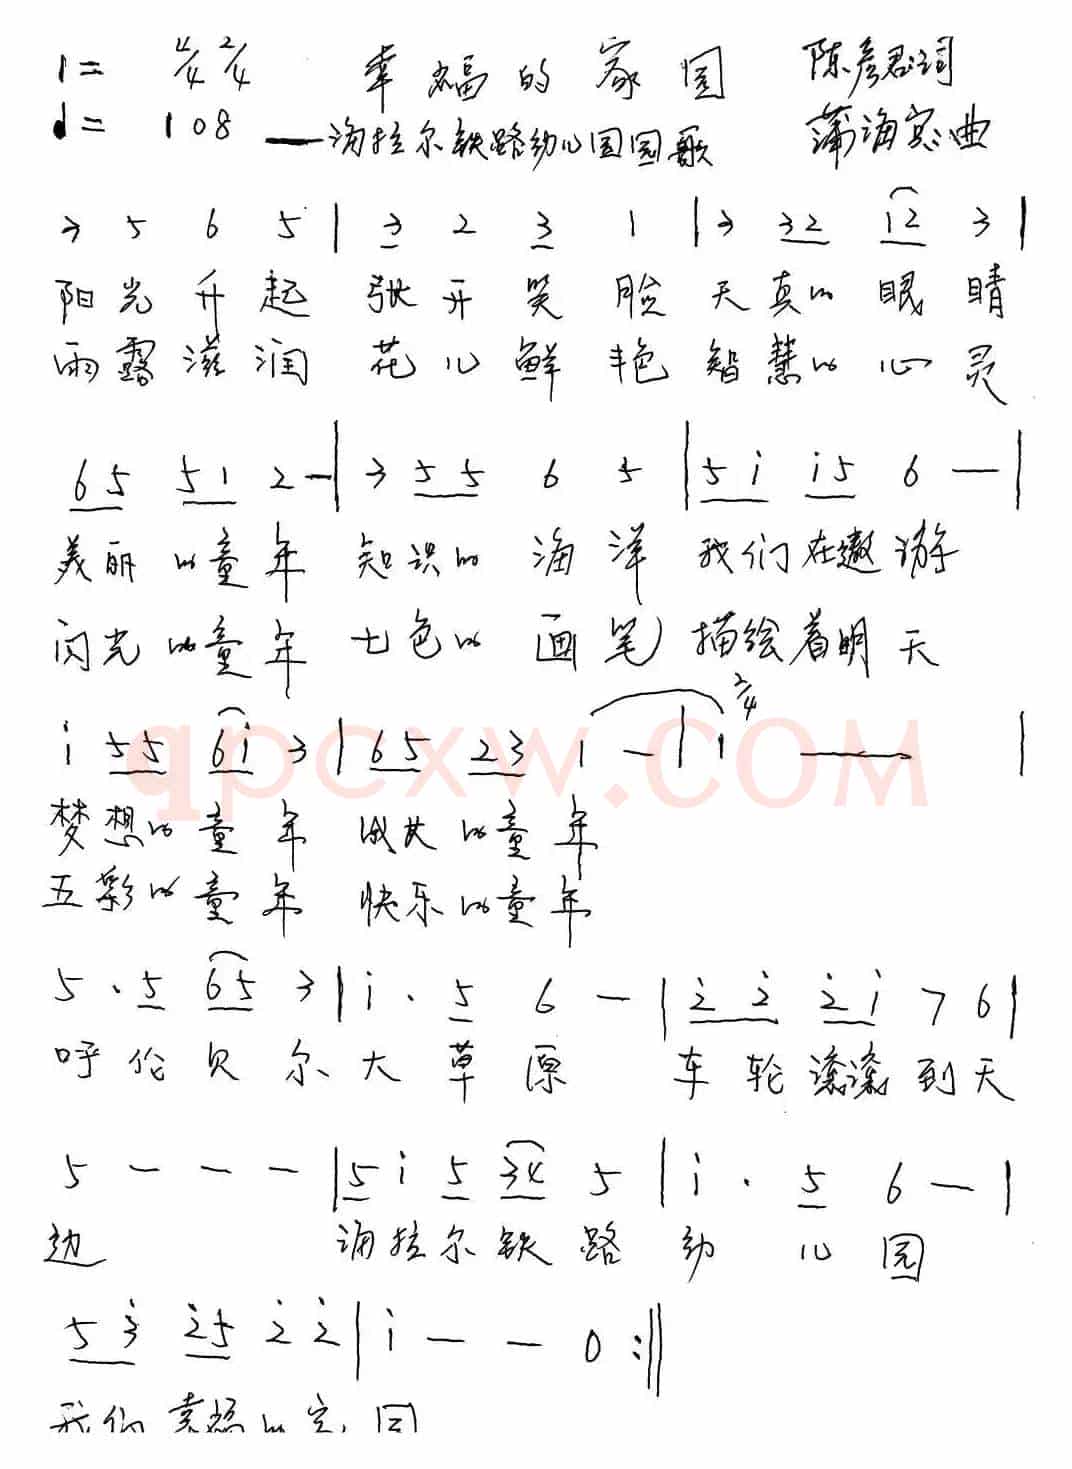 1= 4/4 2/4 幸福的家园 陈彦君词
♩= 108 ——海拉尔铁路幼儿园园歌 蒲海宽曲
3 5 6 5 | 3 2 3 1 | 3 32 12 3 |
阳光升起 张开笑脸 天真的眼睛
雨露滋润 花儿鲜艳 智慧的心灵
65 51 2 — | 3 55 6 5 | 5i i5 6 — |
美丽的童年 知识的海洋 我们在遨游
闪光的童年 七色的画笔 描绘着明天
2/4
i 55 6i 3 | 65 23 1 — | 1 — |
梦想的童年 成长的童年
五彩的童年 快乐的童年
5 · 5 65 3 | i · 5 6 — | 2̇ 2̇ 2̇ i 7 6 |
呼伦贝尔大草原 车轮滚滚到天
5 — — — | 5 i 5 34 5 | i · 5 6 — |
边 海拉尔铁路幼儿园
5 3̇ 2̇5 2̇ 2̇ | i — — 0 :‖
我们幸福的家园
qpcxw.COM